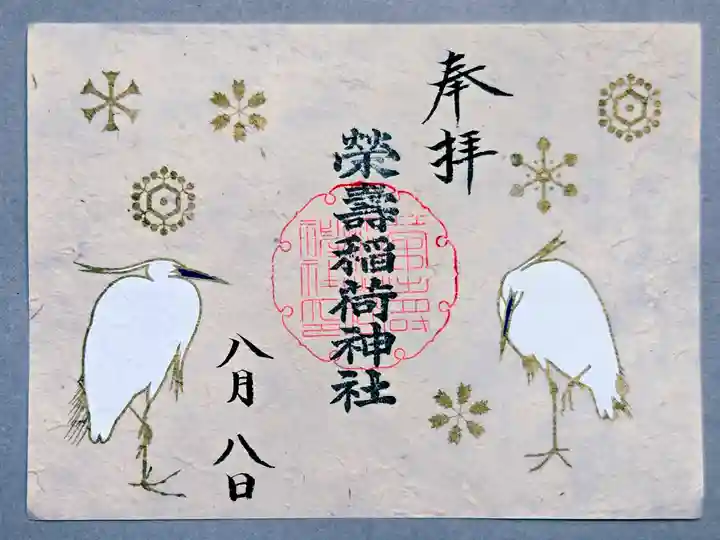 奉拝
榮壽稲荷神社
八月八日